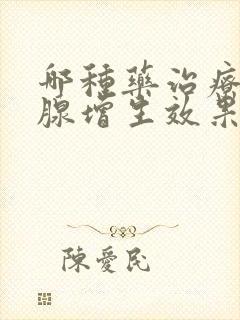 哪種藥治療
腺增生效果
陳愛民